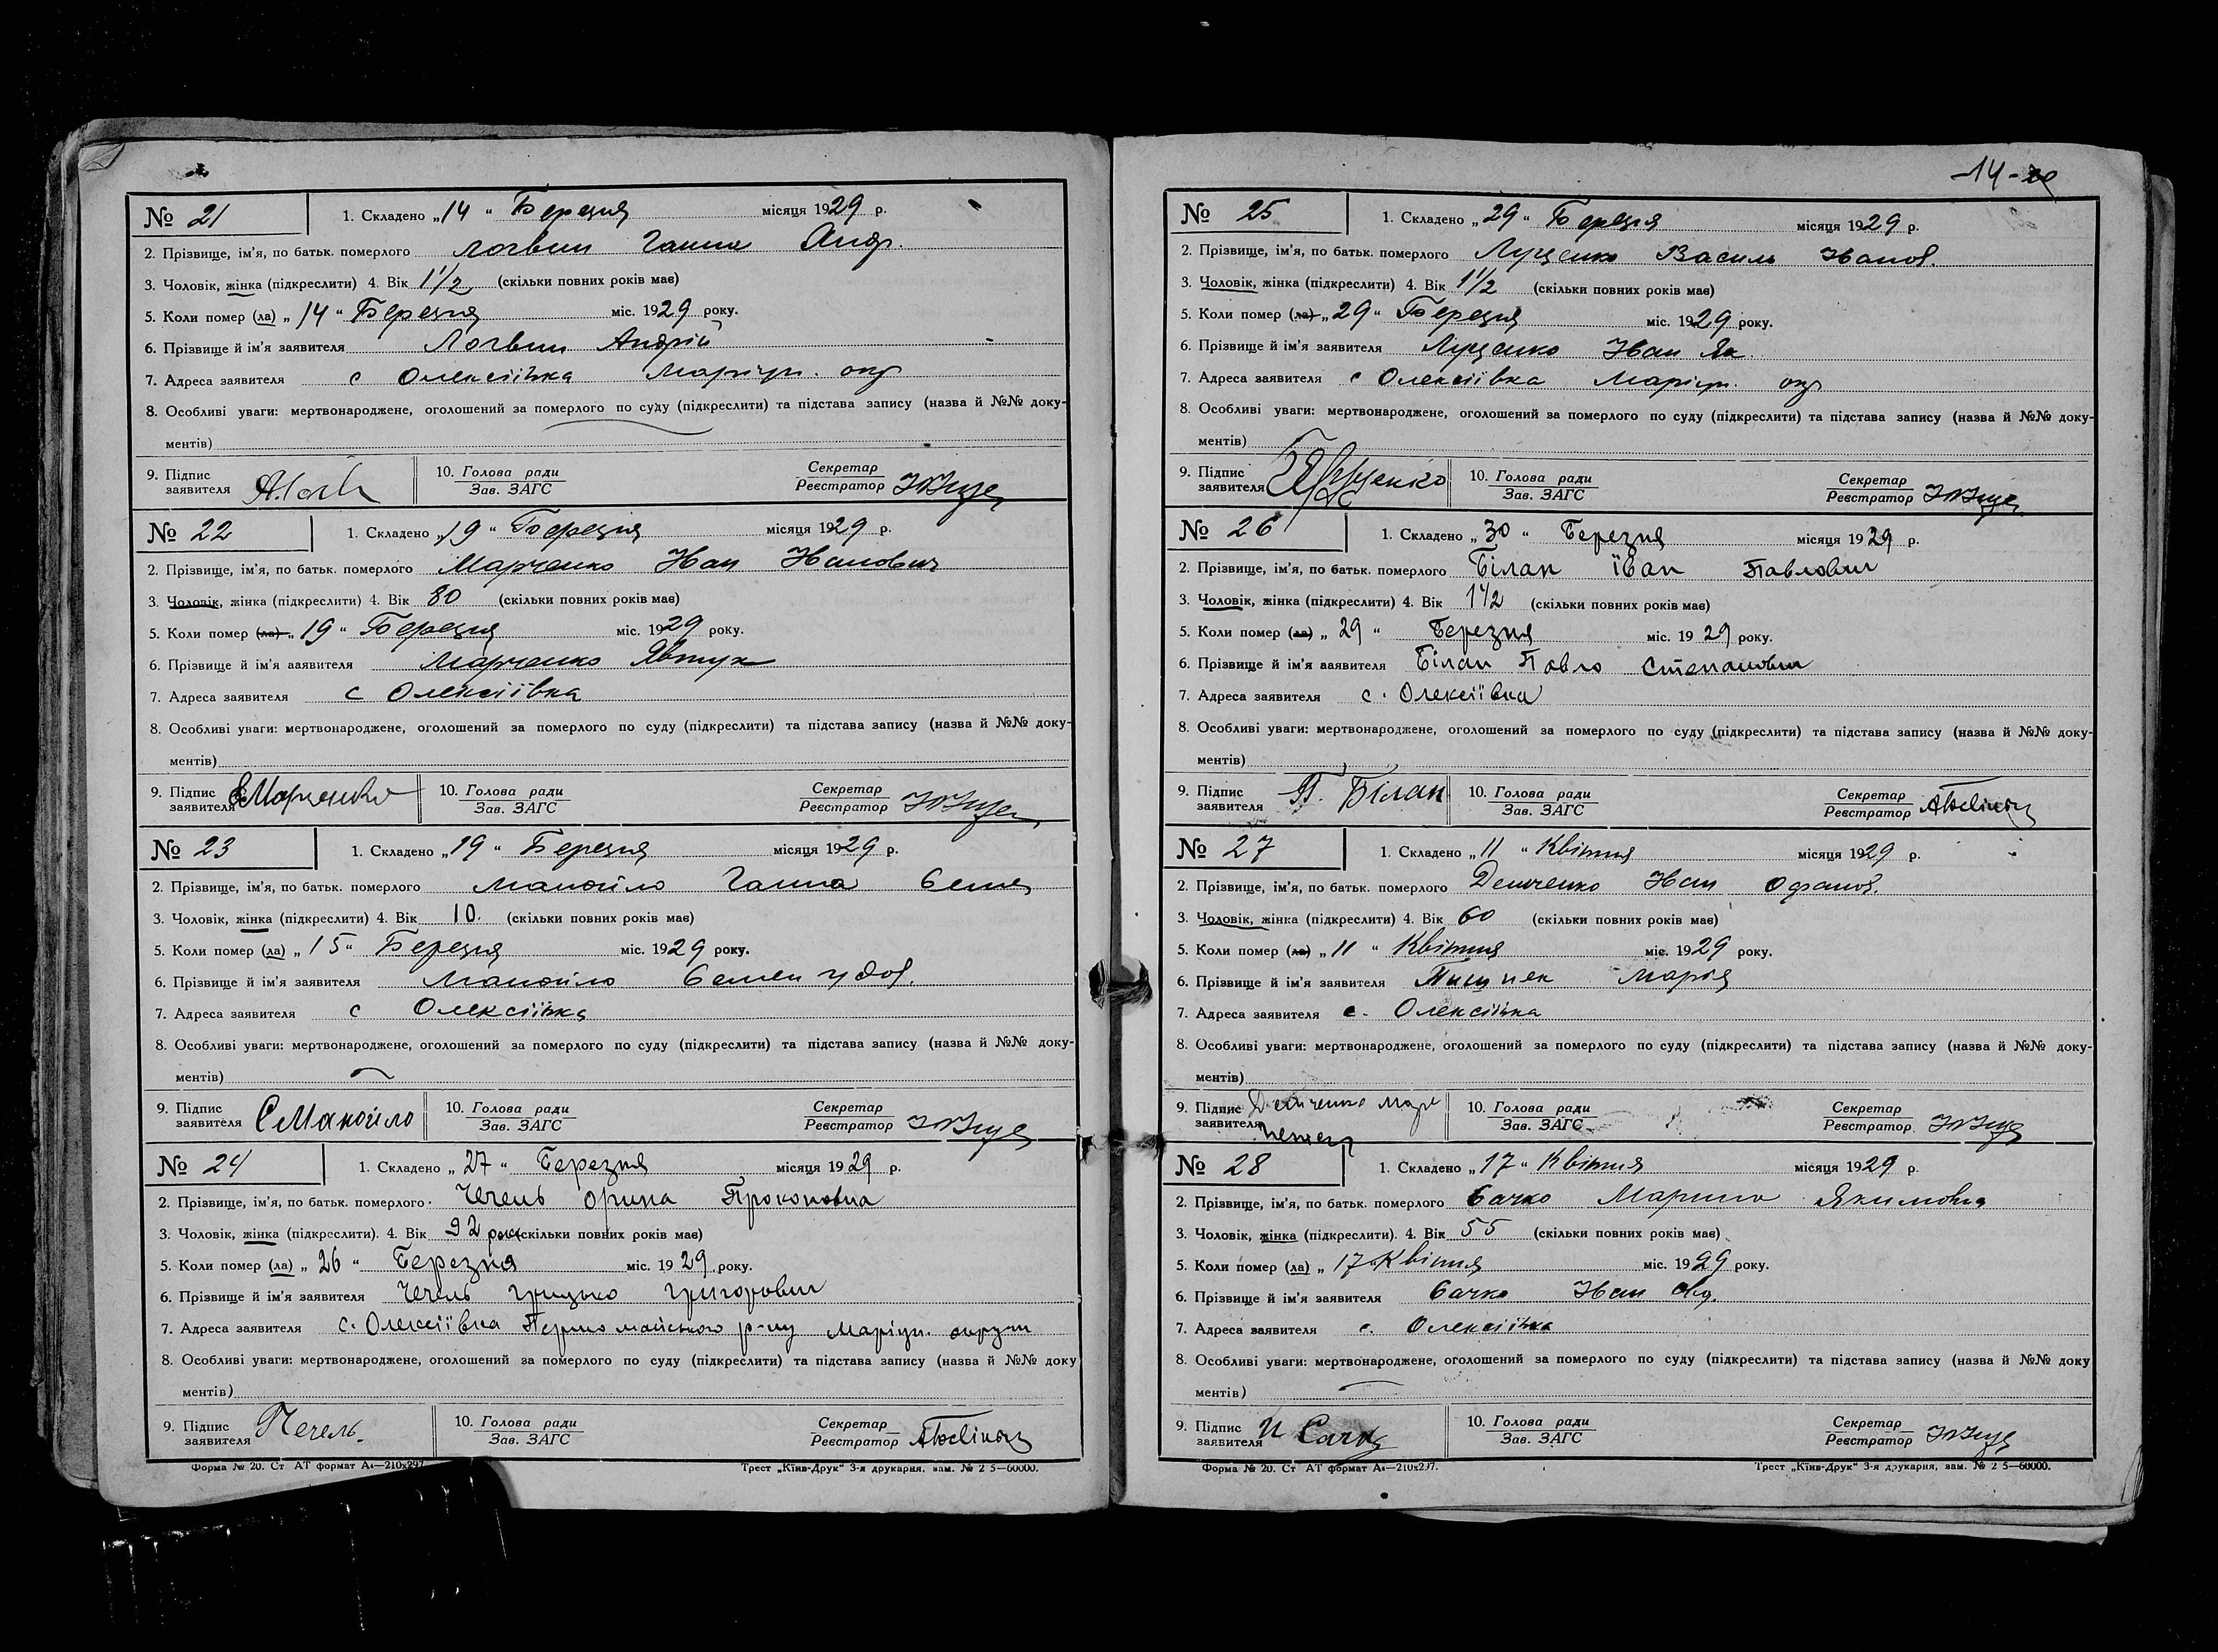 № 21 1. Складено „14“ Березня місяця 1929 р.
2. Прізвище, ім'я, по батьк. померлого Логвин Ганна Андр.
3. Чоловік, жінка (підкреслити) 4. Вік 1 1/2 (скільки повних років має)
5. Коли помер (ла) „14“ Березня міс. 1929 року.
6. Прізвище й ім'я заявителя Логвин Андрій
7. Адреса заявителя с Олексіївка Маріуп. окр
8. Особливі уваги: мертвонароджене, оголошений за померлого по суду (підкреслити) та підстава запису (назва й №№ доку-
ментів)
9. Підпис заявителя 10. Голова ради Зав. ЗАГС Секретар Реєстратор
№ 22 1. Складено „19“ Березня місяця 1929 р.
2. Прізвище, ім'я, по батьк. померлого Марченко Іван Іванович
3. Чоловік, жінка (підкреслити) 4. Вік 80 (скільки повних років має)
5. Коли помер (ла) „19“ Березня міс. 1929 року.
6. Прізвище й ім'я заявителя Марченко Явтух
7. Адреса заявителя с Олексіївка
8. Особливі уваги: мертвонароджене, оголошений за померлого по суду (підкреслити) та підстава запису (назва й №№ доку-
ментів)
9. Підпис заявителя ЄМарченко 10. Голова ради Зав. ЗАГС Секретар Реєстратор
№ 23 1. Складено „19“ Березня місяця 1929 р.
2. Прізвище, ім'я, по батьк. померлого Манойло Ганна Семен
3. Чоловік, жінка (підкреслити) 4. Вік 10. (скільки повних років має)
5. Коли помер (ла) „15“ Березня міс. 1929 року.
6. Прізвище й ім'я заявителя Манойло Семен
7. Адреса заявителя с Олексіївка
8. Особливі уваги: мертвонароджене, оголошений за померлого по суду (підкреслити) та підстава запису (назва й №№ доку-
ментів)
9. Підпис заявителя СМанойло 10. Голова ради Зав. ЗАГС Секретар Реєстратор
№ 24 1. Складено „27“ Березня місяця 1929 р.
2. Прізвище, ім'я, по батьк. померлого Чечель Орина Прокоповна
3. Чоловік, жінка (підкреслити). 4. Вік 92 (скільки повних років має)
5. Коли помер (ла) „26“ Березня міс. 1929 року.
6. Прізвище й ім'я заявителя Чечель Грицько Григорович
7. Адреса заявителя с. Олексіївка Першомайського р-ну Маріуп. округи
8. Особливі уваги: мертвонароджене, оголошений за померлого по суду (підкреслити) та підстава запису (назва й №№ доку
ментів)
9. Підпис заявителя Чечель 10. Голова ради Зав. ЗАГС Секретар Реєстратор
Форма № 20. Ст АТ формат А4—210х297
Трест „Київ-Друк“ 3-я друкарня, зам. № 2 5—60000.
-14-
№ 25 1. Складено „29“ Березня місяця 1929 р.
2. Прізвище, ім'я, по батьк. померлого Луценко Василь Іванов.
3. Чоловік, жінка (підкреслити) 4. Вік 1 1/2 (скільки повних років має)
5. Коли помер (ла) „29“ Березня міс. 1929 року.
6. Прізвище й ім'я заявителя Луценко Іван Як
7. Адреса заявителя с Олексіївка Маріуп. окр
8. Особливі уваги: мертвонароджене, оголошений за померлого по суду (підкреслити) та підстава запису (назва й №№ доку-
ментів)
9. Підпис заявителя 10. Голова ради Зав. ЗАГС Секретар Реєстратор
№ 26 1. Складено „30“ Березня місяця 1929 р.
2. Прізвище, ім'я, по батьк. померлого Білан Іван Павлович
3. Чоловік, жінка (підкреслити) 4. Вік 1 1/2 (скільки повних років має)
5. Коли помер (ла) „29“ Березня міс. 1929 року.
6. Прізвище й ім'я заявителя Білан Павло Степанович
7. Адреса заявителя с. Олексіївка
8. Особливі уваги: мертвонароджене, оголошений за померлого по суду (підкреслити) та підстава запису (назва й №№ доку-
ментів)
9. Підпис заявителя П. Білан 10. Голова ради Зав. ЗАГС Секретар Реєстратор
№ 27 1. Складено „11“ Квітня місяця 1929 р.
2. Прізвище, ім'я, по батьк. померлого Демченко Іван Офанов.
3. Чоловік, жінка (підкреслити) 4. Вік 60 (скільки повних років має)
5. Коли помер (ла) „11“ Квітня міс. 1929 року.
6. Прізвище й ім'я заявителя Марія
7. Адреса заявителя с. Олексіївка
8. Особливі уваги: мертвонароджене, оголошений за померлого по суду (підкреслити) та підстава запису (назва й №№ доку-
ментів)
9. Підпис заявителя Демченко 10. Голова ради Зав. ЗАГС Секретар Реєстратор
№ 28 1. Складено „17“ Квітня місяця 1929 р.
2. Прізвище, ім'я, по батьк. померлого Сачко Марина Якимовна
3. Чоловік, жінка (підкреслити). 4. Вік 55 (скільки повних років має)
5. Коли помер (ла) „17 Квітня міс. 1929 року.
6. Прізвище й ім'я заявителя Сачко Іван
7. Адреса заявителя с. Олексіївка
8. Особливі уваги: мертвонароджене, оголошений за померлого по суду (підкреслити) та підстава запису (назва й №№ доку
ментів)
9. Підпис заявителя 10. Голова ради Зав. ЗАГС Секретар Реєстратор
Форма № 20. Ст АТ формат А4—210х297.
Трест „Київ-Друк“ 3-я друкарня, зам. № 2 5—60000.